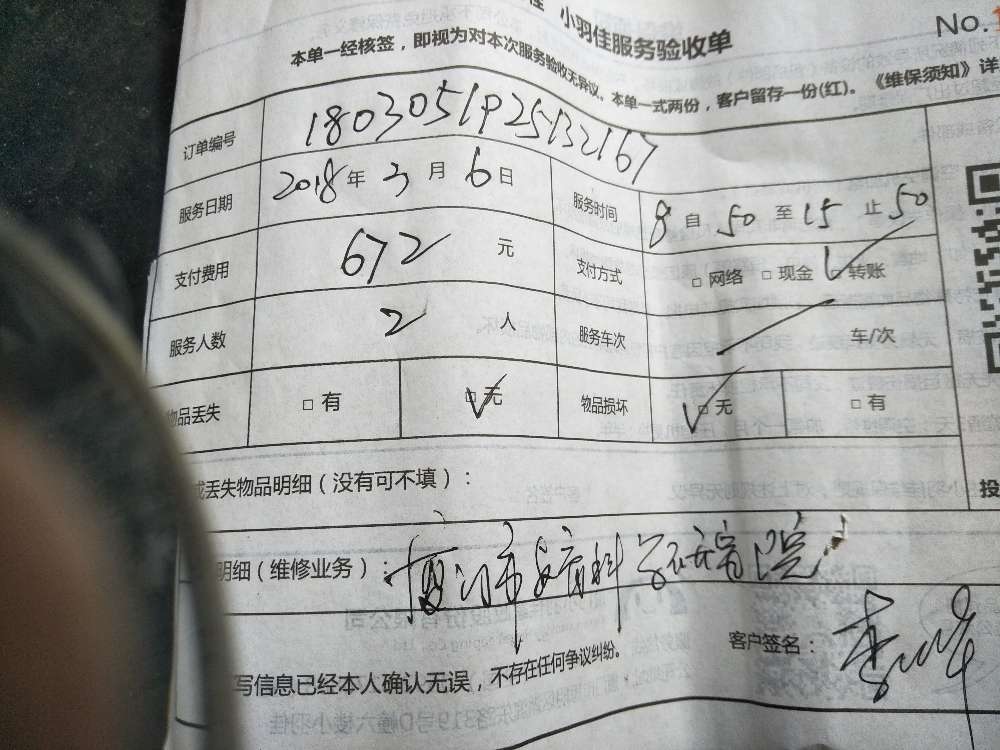 佳 小羽佳服务验收单
No.
本单一经核签，即视为对本次服务验收无异议。本单一式两份，客户留存一份(红)。《维保须知》详
订单编号 1803051925132167
服务日期 2018年3月6日 服务时间 8自50至15止50
支付费用 672元 支付方式 □网络 □现金 □转账
服务人数 2人 服务车次 车/次
物品丢失 □有 □无 物品损坏 □无 □有
丢失物品明细（没有可不填）：
投
明细（维修业务）： 厦门市 科学研究院
客户签名：
写信息已经本人确认无误，不存在任何争议纠纷。